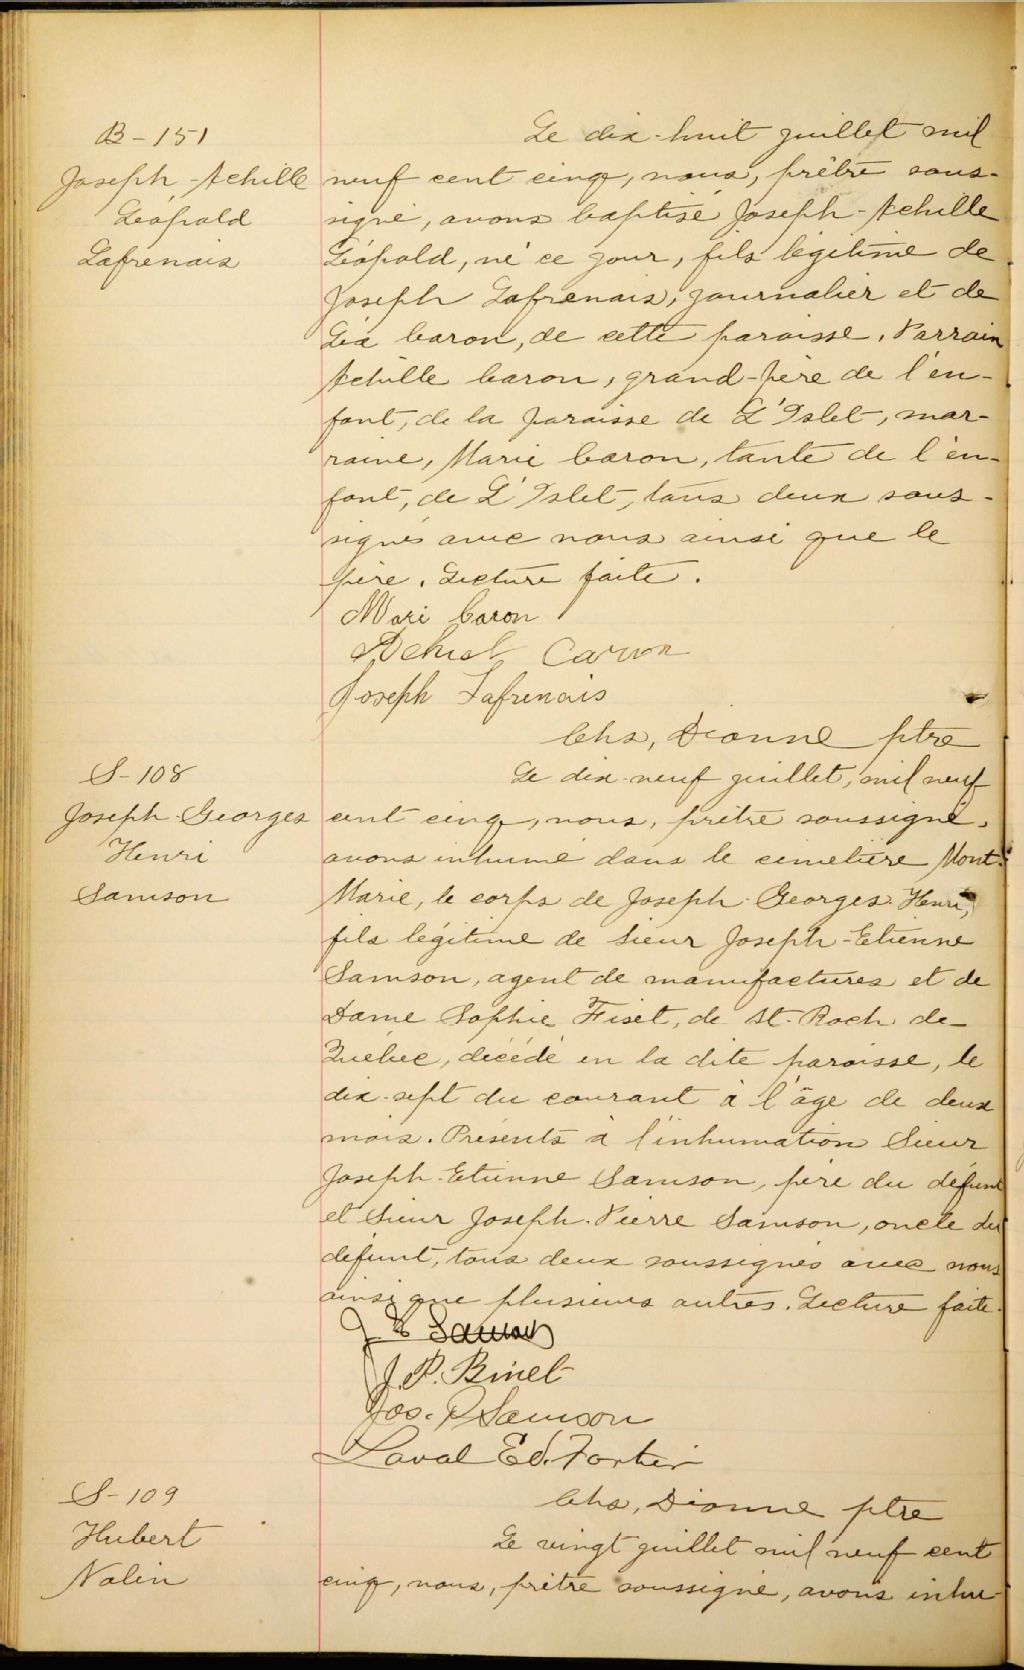 B-151
Joseph-Achille
Léopold
Lafrenais
Le dix-huit juillet mil
neuf cent cinq, nous, prêtre sous-
signé, avons baptisé Joseph-Achille
Léopold, né ce jour, fils légitime de
Joseph Lafrenais, journalier et de
Léa Caron, de cette paroisse. Parrain
Achille Caron, grand-père de l'en-
fant, de la paroisse de L'Islet, mar-
raine, Marie Caron, tante de l'en-
fant, de L'Islet, tous deux sous-
signés avec nous ainsi que le
père. Lecture faite.
Mari Caron
Caron
Joseph Lafrenais
Chs, Dionne ptre
S-108
Joseph-Georges
Henri
Samson
Le dix-neuf juillet, mil neuf
cent cinq, nous, prêtre soussigné,
avons inhumé dans le cimetière Mont-
Marie, le corps de Joseph-Georges-Henri,
fils légitime de Sieur Joseph-Etienne
Samson, agent de manufactures et de
Dame Sophie Fiset, de St-Roch de
Québec, décédé en la dite paroisse, le
dix-sept du courant à l'âge de deux
mois. Présents à l'inhumation Sieur
Joseph-Etienne Samson, père du défunt
et Sieur Joseph-Pierre Samson, oncle du
défunt, tous deux soussignés avec nous
ainsi que plusieurs autres. Lecture faite.
J E Samson
J. P. Binet
Jos. P Samson
Laval Ed. Fortier
Chs, Dionne ptre
S-109
Hubert
Nolin
Le vingt juillet mil neuf cent
cinq, nous, prêtre soussigné, avons inhu-